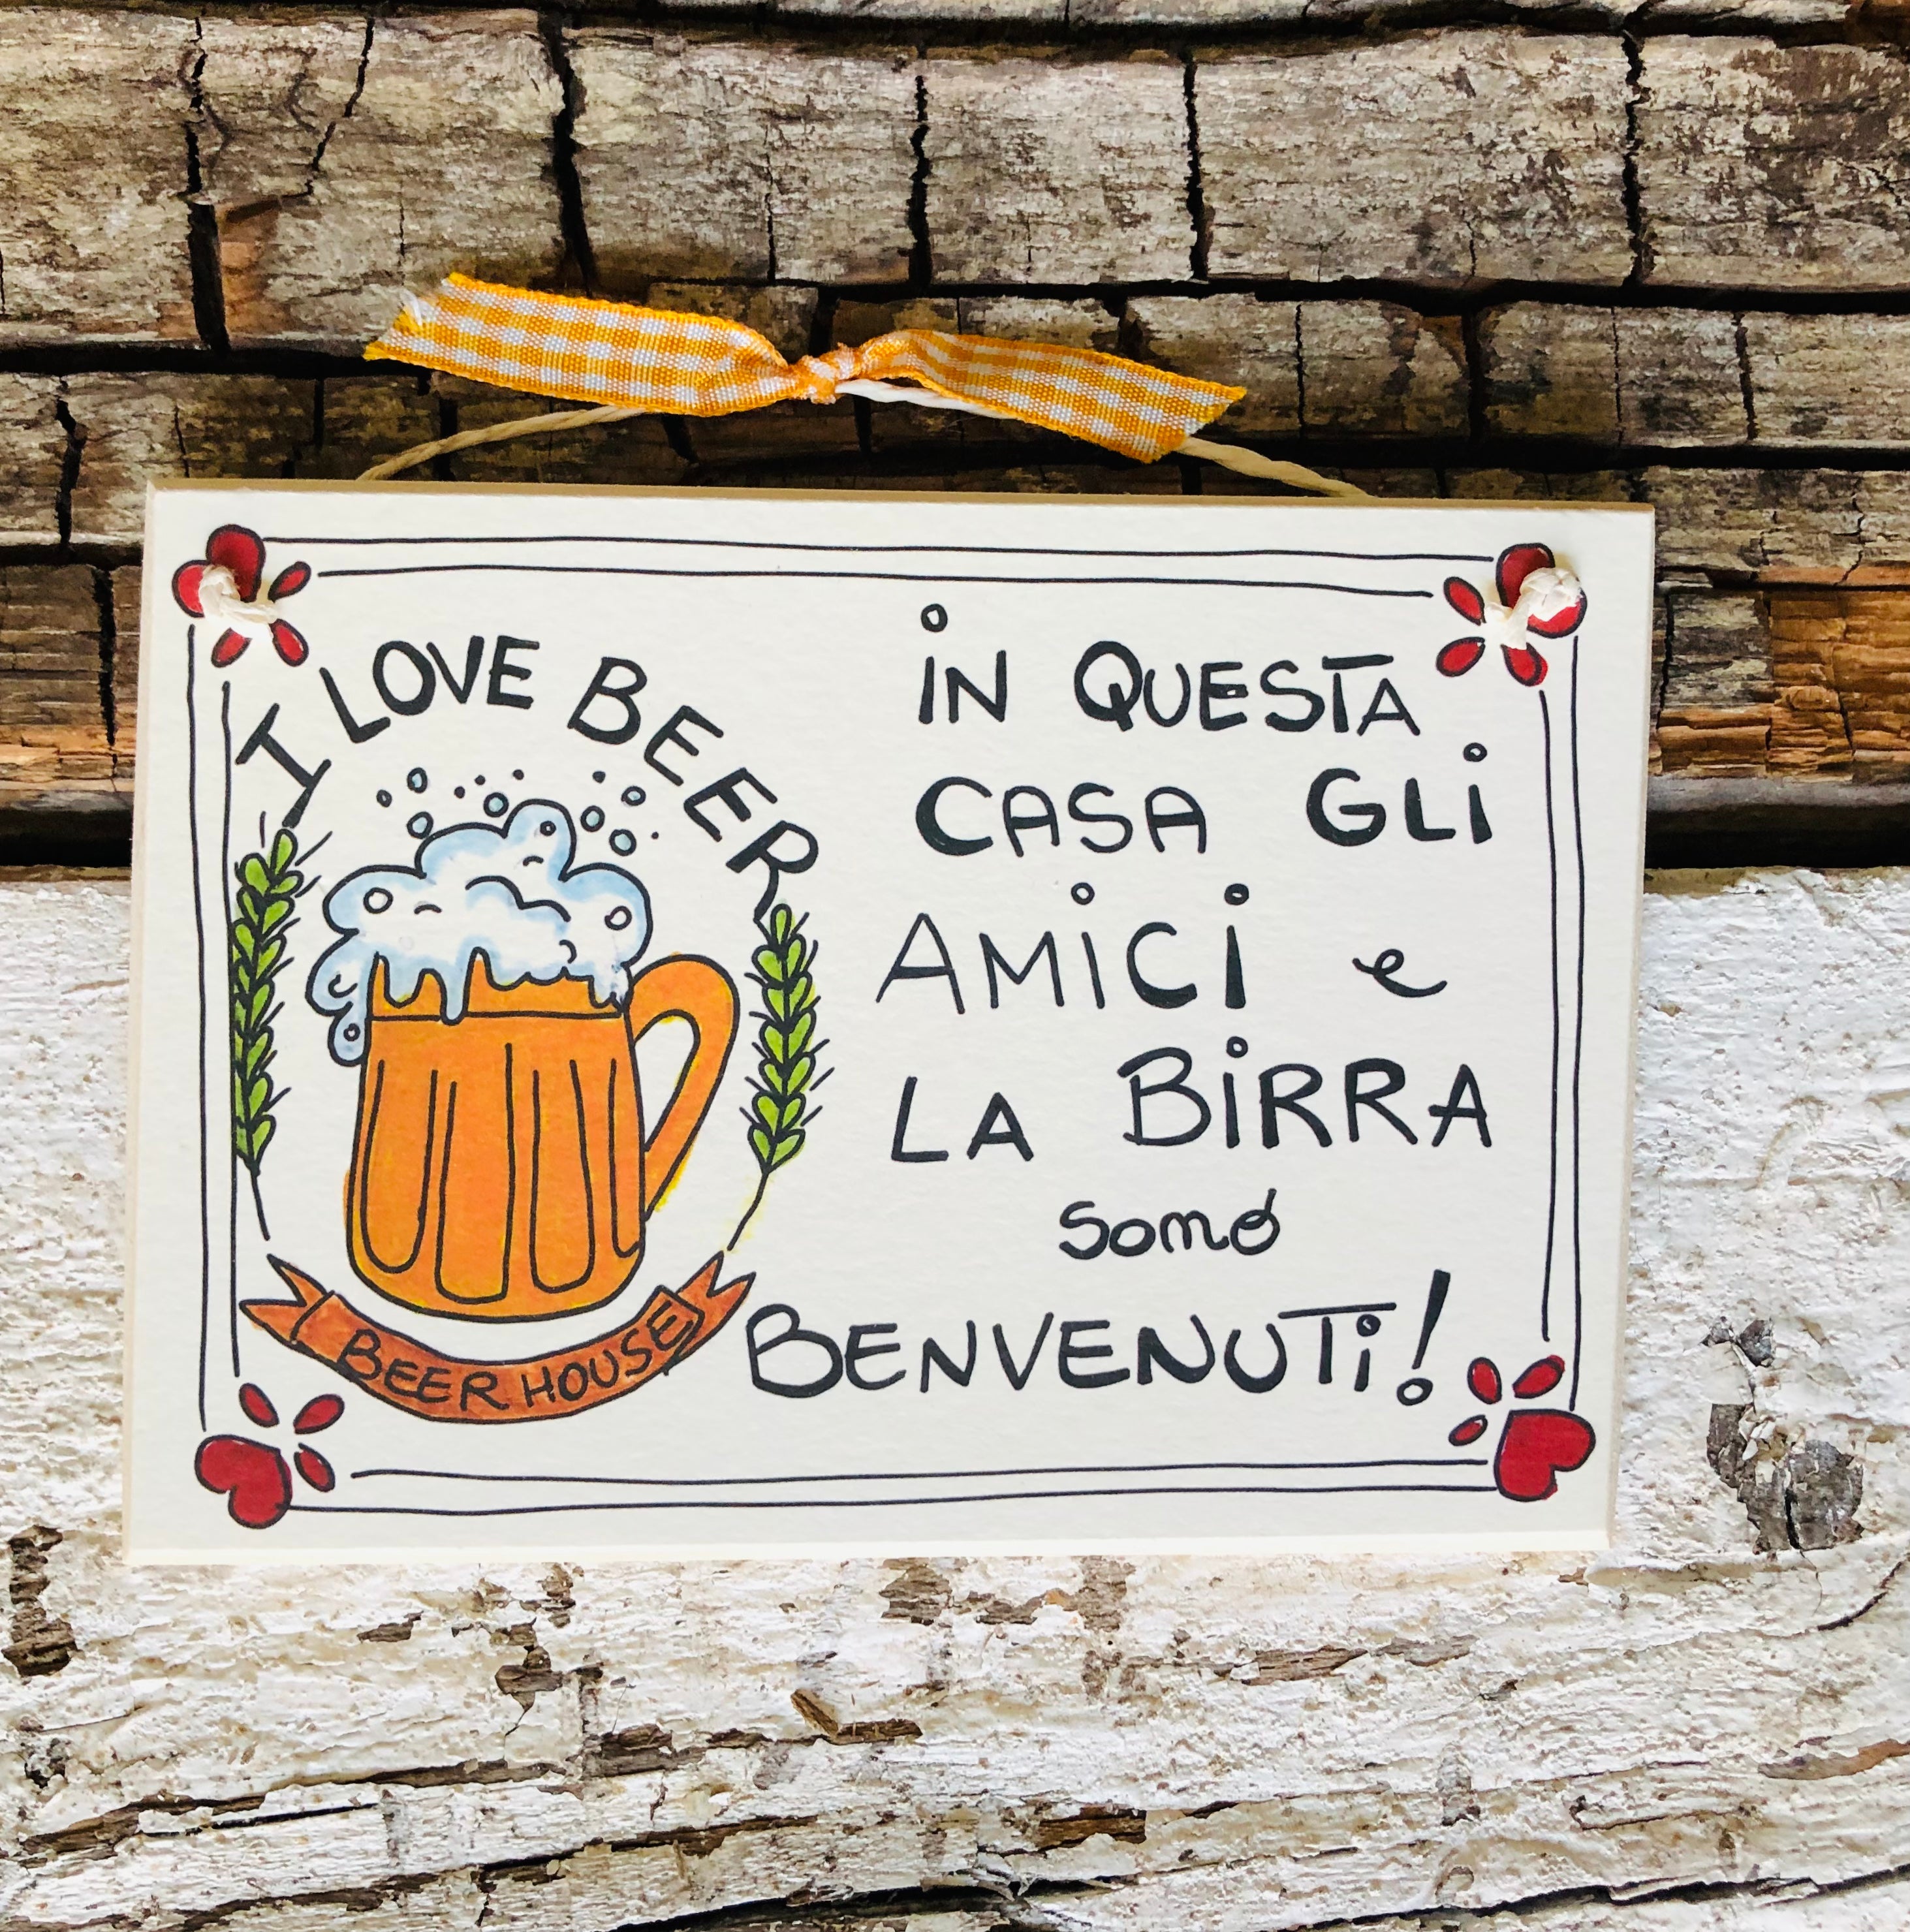 I LOVE BEER
BEER HOUSE
iN QUESTA
CASA GLi
AMiCi e
LA BiRRA
sono
BENVENUTi!